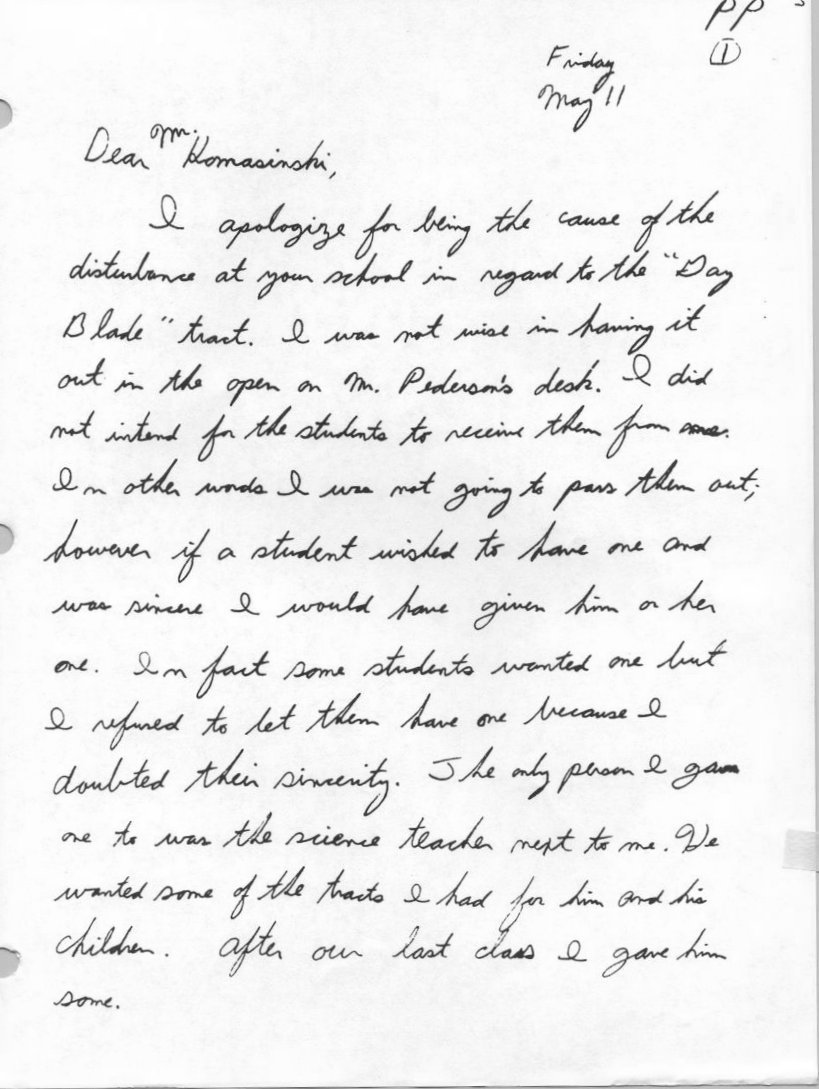 PP
①
Friday
May 11
Dear Mr. Komasinski,
I apologize for being the cause of the
disturbance at your school in regard to the "Day
Blade" tract. I was not wise in having it
out in the open on Mr. Pederson's desk. I did
not intend for the students to receive them from me.
In other words I was not going to pass them out;
however if a student wished to have one and
was sincere I would have given him or her
one. In fact some students wanted one but
I refused to let them have one because I
doubted their sincerity. The only person I gave
one to was the science teacher next to me. He
wanted some of the tracts I had for him and his
children. After our last class I gave him
some.